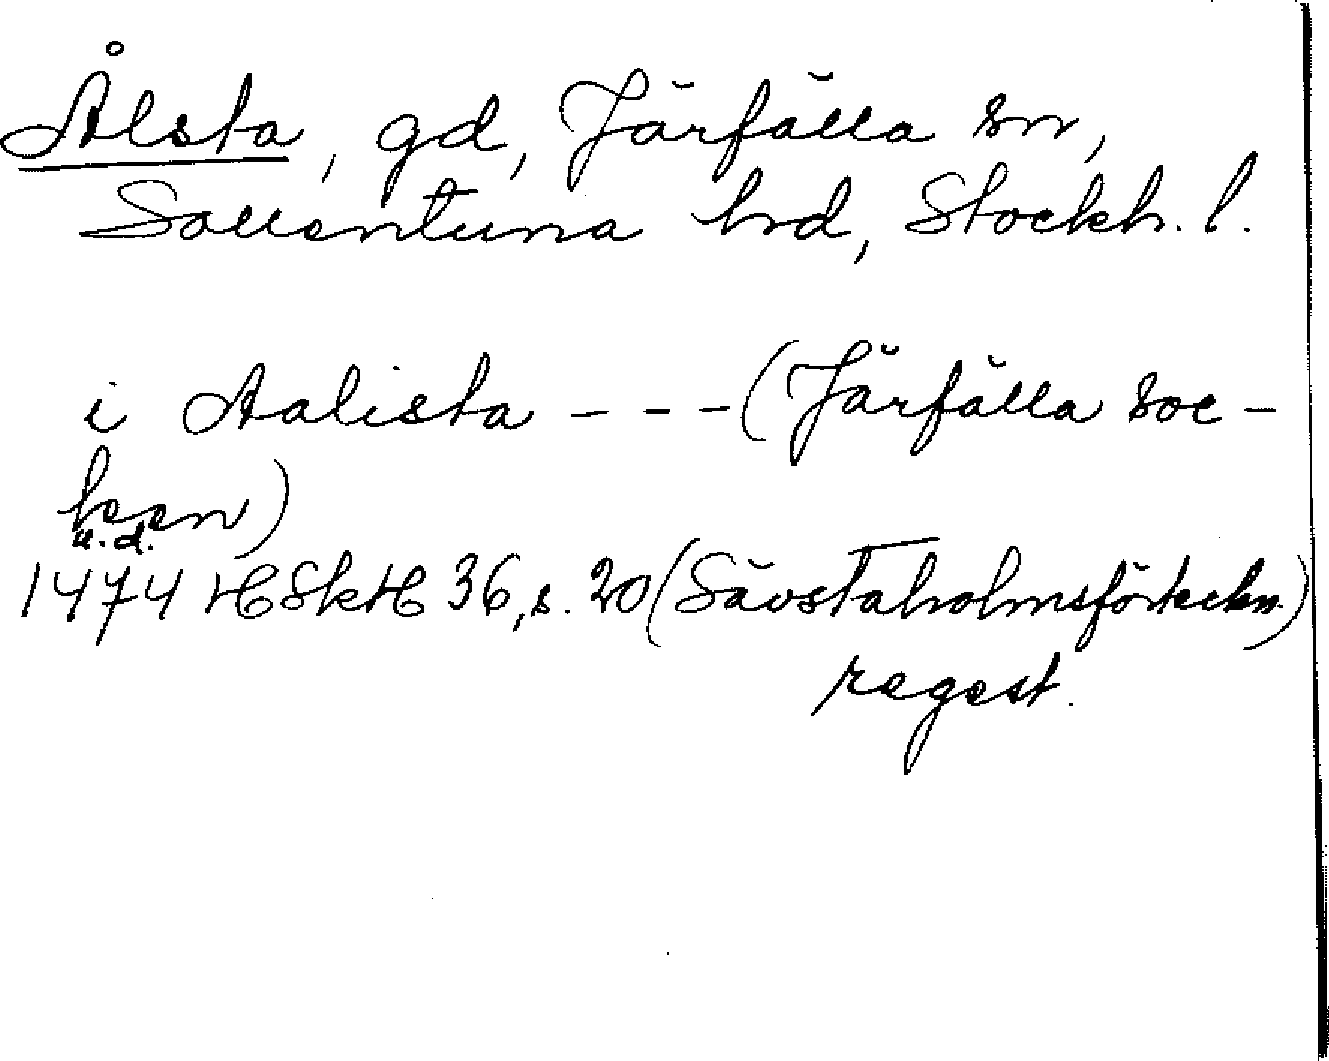 Ålsta, gd, Järfälla sn,
Sollentuna hrd, Stockh. l.
i Aalista - - - (Järfälla soc-
ken)
u. d.
1474 HSkH 36, s. 20 (Sävstaholmsförteckn.)
regest.